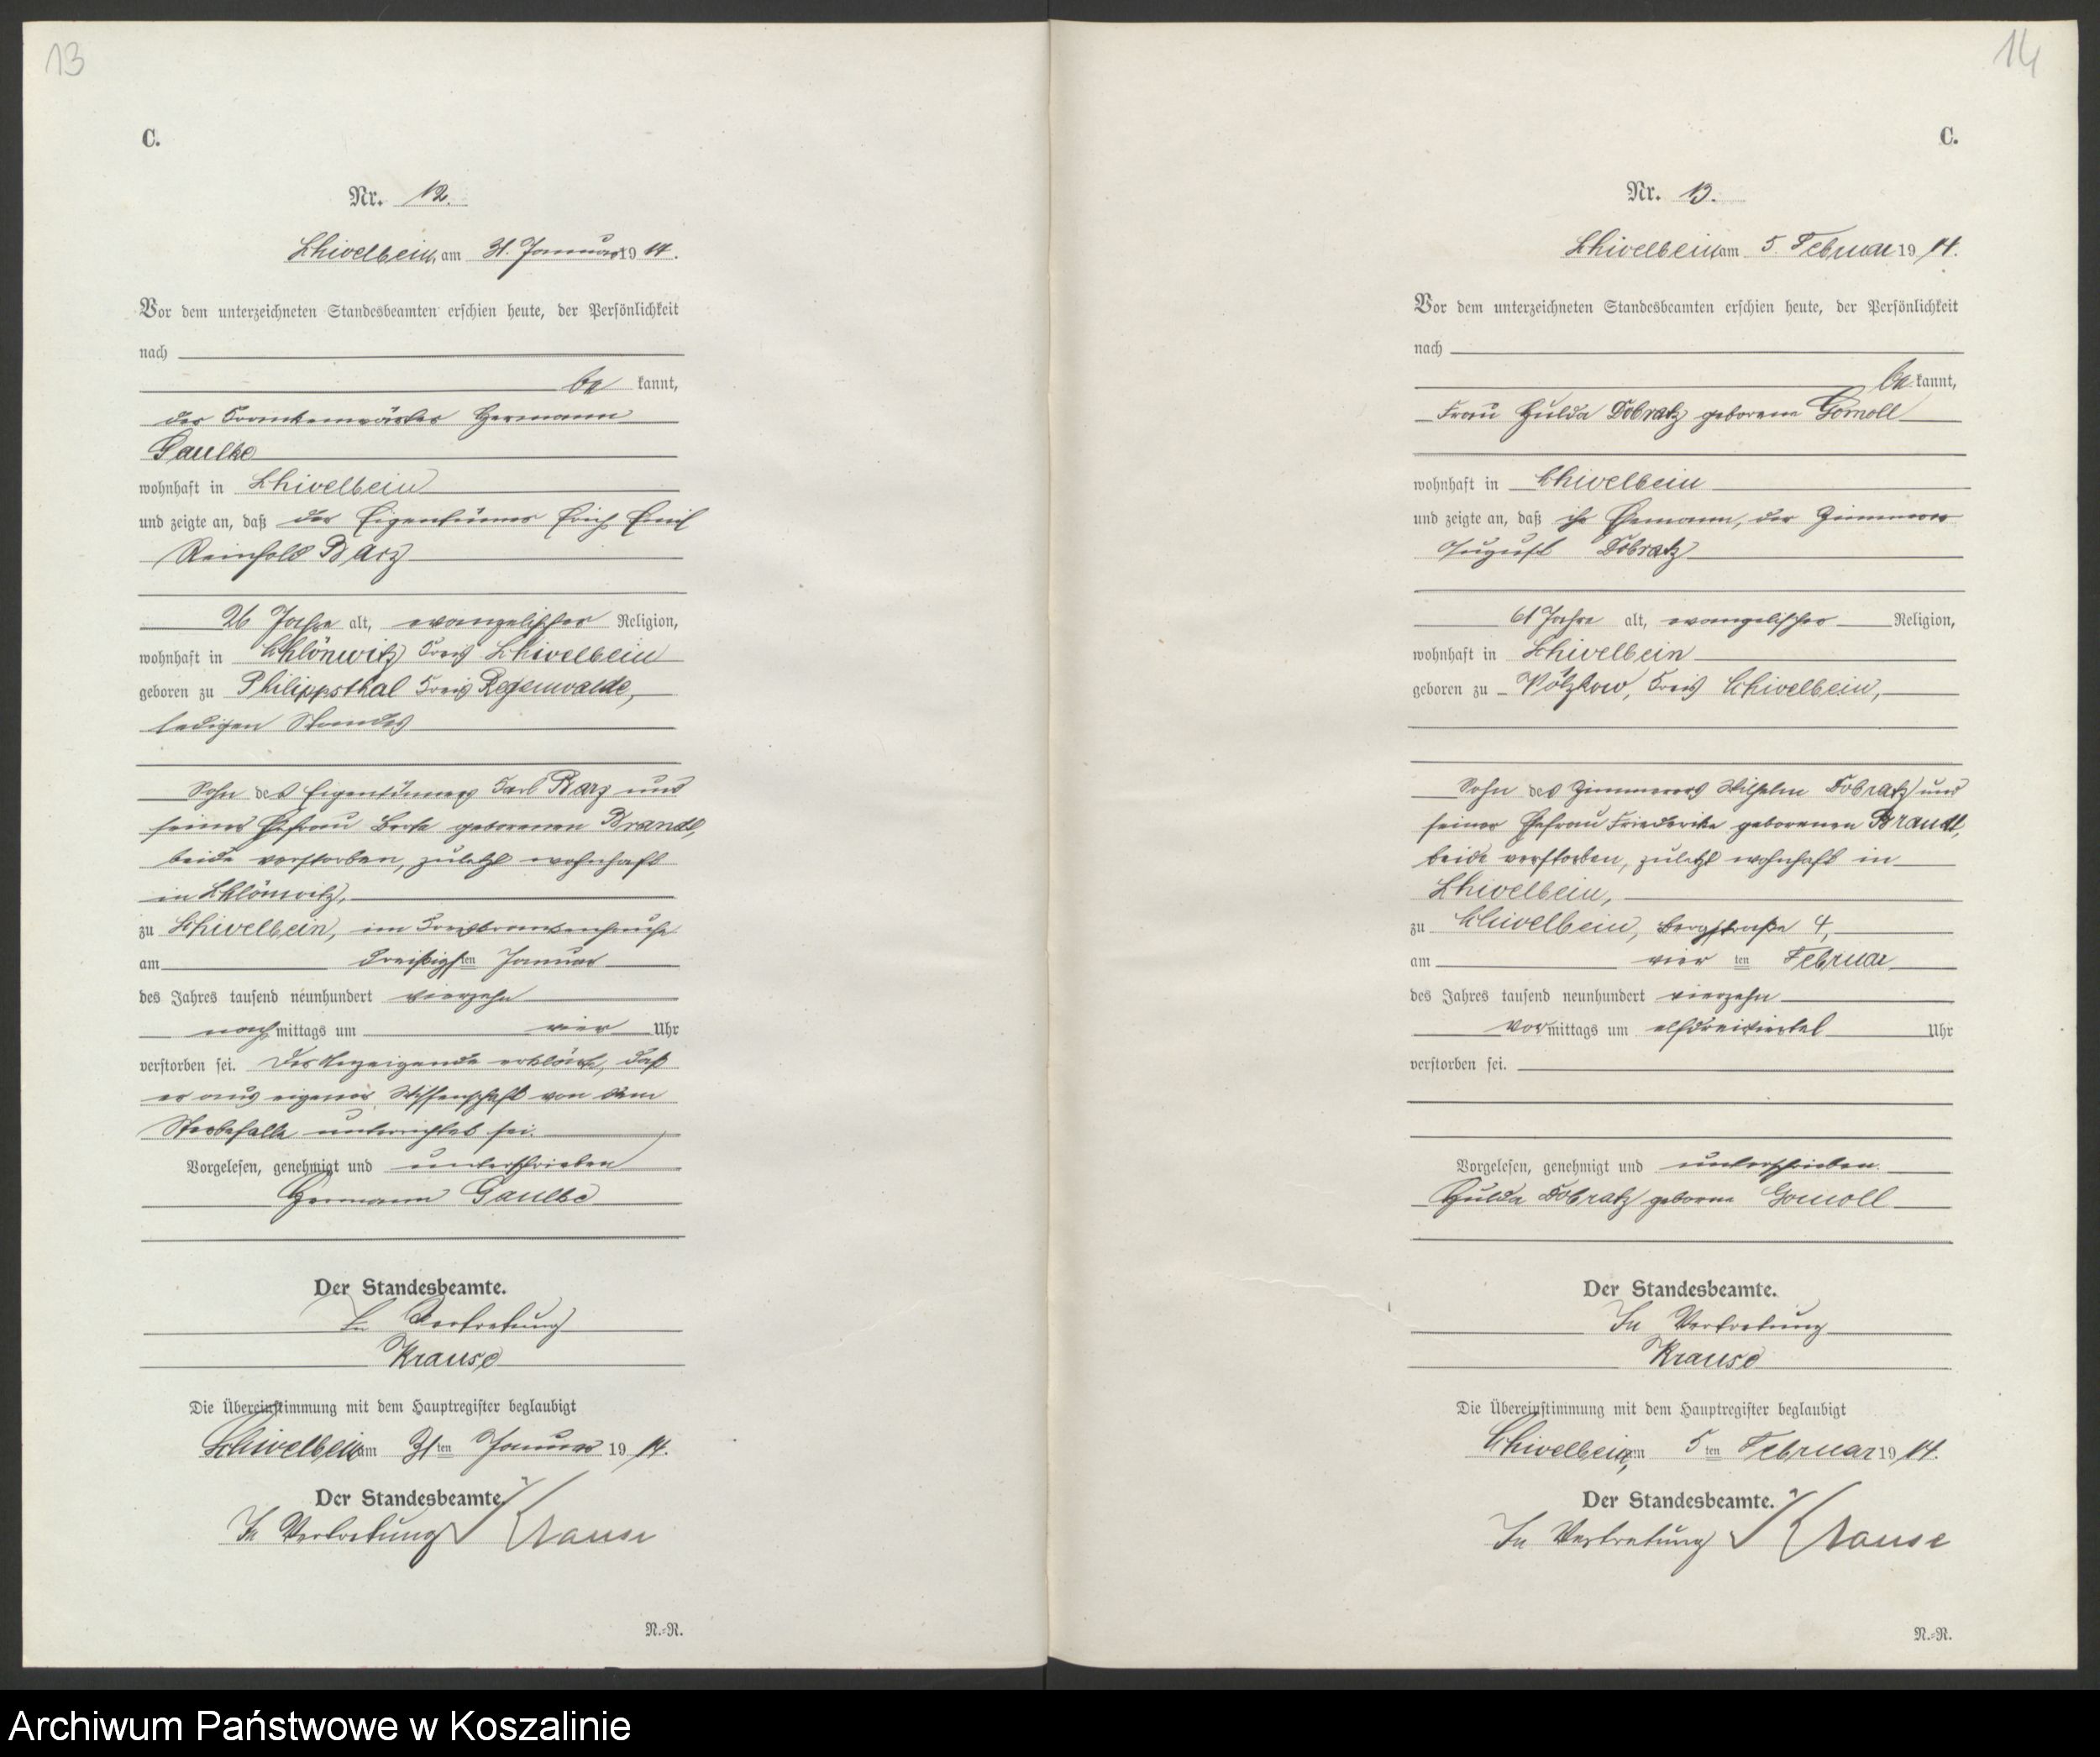 13
C.
Nr. 12.
Schivelbein, am 31. Januar 1914.
Vor dem unterzeichneten Standesbeamten erschien heute, der Persönlichkeit
nach
be kannt,
der Krankenwärter Hermann
Gaulke
wohnhaft in Schivelbein
und zeigte an, daß der Eigentümer Erich Emil
Reinhold Barz
26 Jahre alt, evangelischer Religion,
wohnhaft in Schlönwitz Kreis Schivelbein
geboren zu Philippsthal Kreis Regenwalde,
ledigen Standes
Sohn des Eigentümers Karl Barz und
seiner Ehefrau Berta geborenen Brandt,
beide verstorben, zuletzt wohnhaft
in Schlönwitz,
zu Schivelbein, im Kreiskrankenhause
am dreißigsten Januar
des Jahres tausend neunhundert vierzehn
nachmittags um vier Uhr
verstorben sei. Der Anzeigende erklärte, daß
er aus eigener Wissenschaft von dem
Sterbefalle unterrichtet sei.
Vorgelesen, genehmigt und unterschrieben
Hermann Gaulke
Der Standesbeamte.
In Vertretung
Krause
Die Übereinstimmung mit dem Hauptregister beglaubigt
Schivelbein am 31ten Januar 1914.
Der Standesbeamte.
In Vertretung Krause
N.-R.
14
C.
Nr. 13.
Schivelbein am 5. Februar 1914.
Vor dem unterzeichneten Standesbeamten erschien heute, der Persönlichkeit
nach
be kannt,
Frau Hulda Dobratz geborene Gomoll
wohnhaft in Schivelbein
und zeigte an, daß ihr Ehemann, der Zimmerer
August Dobratz
61 Jahre alt, evangelischer Religion,
wohnhaft in Schivelbein
geboren zu Völzkow, Kreis Schivelbein,
Sohn des Zimmerers Wilhelm Dobratz und
seiner Ehefrau Friederike geborenen Brandt,
beide verstorben, zuletzt wohnhaft in
Schivelbein,
zu Schivelbein, Bergstraße 4,
am vier ten Februar
des Jahres tausend neunhundert vierzehn
vormittags um elfdreiviertel Uhr
verstorben sei.
Vorgelesen, genehmigt und unterschrieben.
Hulda Dobratz geborne Gomoll
Der Standesbeamte.
In Vertretung
Krause
Die Übereinstimmung mit dem Hauptregister beglaubigt
Schivelbein, am 5ten Februar 1914.
Der Standesbeamte.
In Vertretung Krause
N.-R.
Archiwum Państwowe w Koszalinie